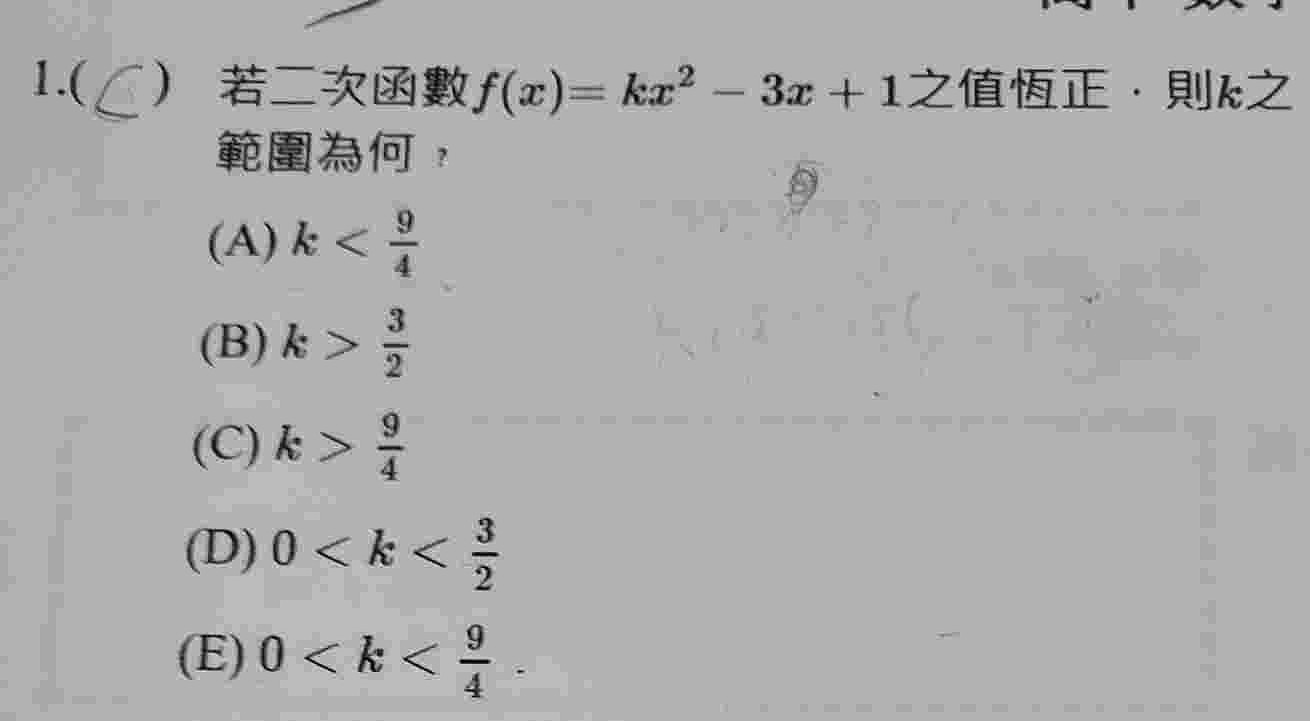 1.(C) 若二次函數f(x)= kx² − 3x + 1之值恆正，則k之
範圍為何？
(A) k < 9/4
(B) k > 3/2
(C) k > 9/4
(D) 0 < k < 3/2
(E) 0 < k < 9/4．